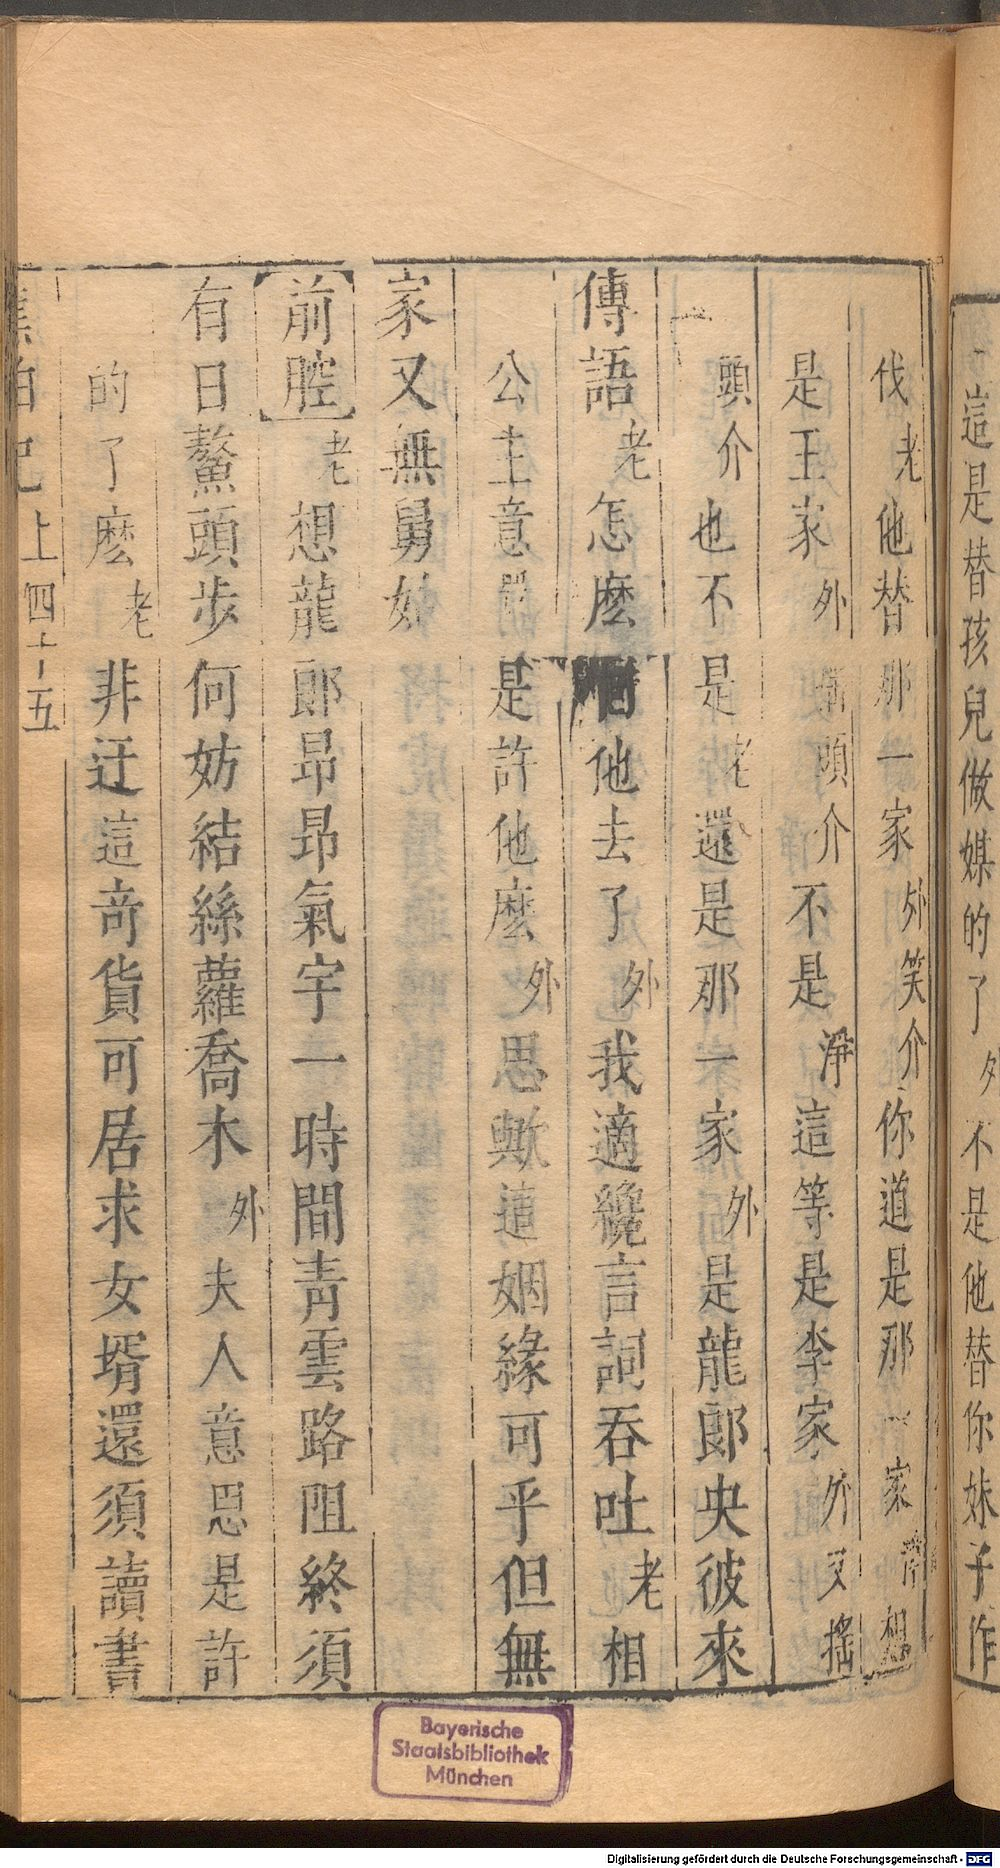 這是替孩兒做媒的了外不是他替你妹子作
伐老他替那一家外笑介你道是那一家淨想
是王家外搖頭介不是淨這等是李家外又搖
頭介也不是老還是那一家外是龍郎央彼來
傳語老怎麽回他去了外我適纔言詞吞吐老相
公主意間是許他麽外思歟這姻緣可乎但無
家又無舅姑
前腔老想龍郎昂昂氣宇一時間靑雲路阻終須
有日鰲頭步何妨結絲蘿喬木外夫人意思是許
的了麽老非迂這奇貨可居求女壻還須讀書
上四十五
Bayerische
Staatsbibliothek
München
Digitalisierung gefördert durch die Deutsche Forschungsgemeinschaft - DFG